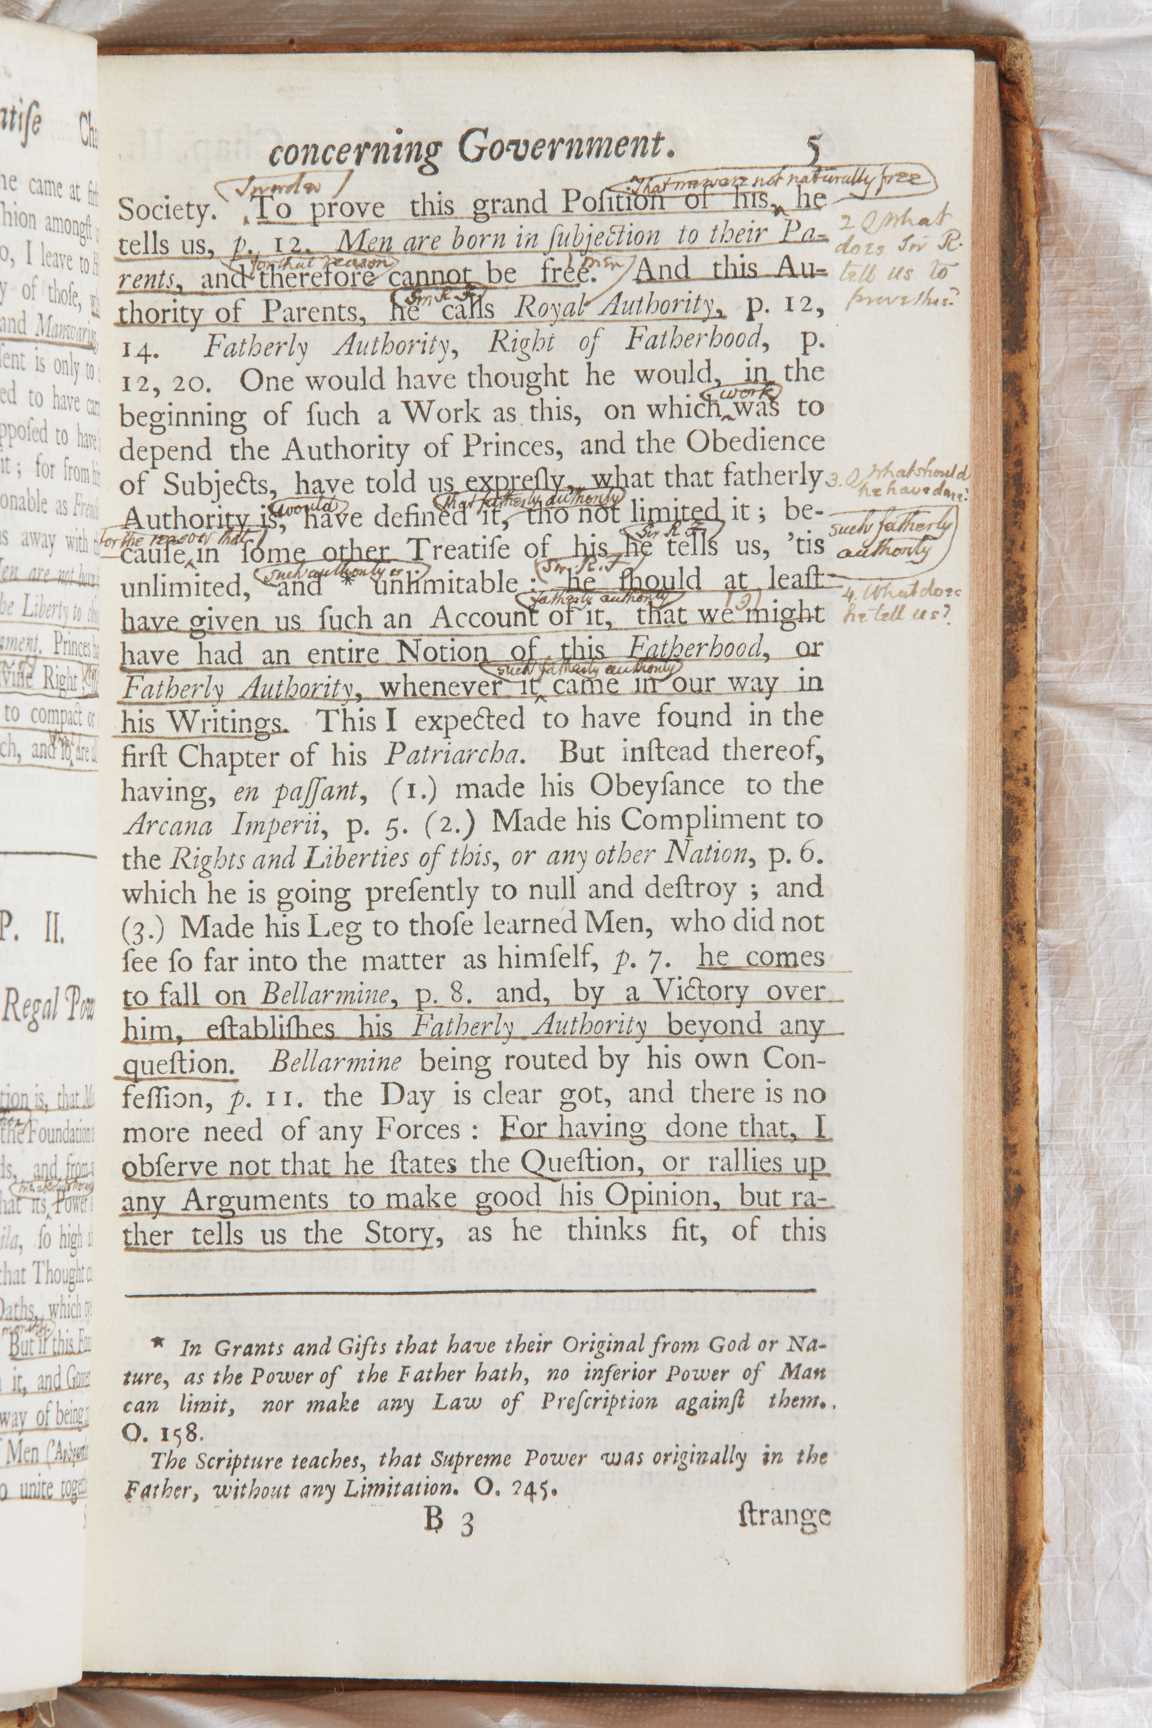 concerning Government. 5
In order
That men were not naturally free
Society. To prove this grand Poſition of his, he
tells us, p. 12. Men are born in ſubjection to their Pa-
for that reason
men
rents, and therefore cannot be free. And this Au-
Sir R F
thority of Parents, he calls Royal Authority, p. 12,
14. Fatherly Authority, Right of Fatherhood, p.
12, 20. One would have thought he would, in the
work
beginning of ſuch a Work as this, on which was to
depend the Authority of Princes, and the Obedience
of Subjects, have told us expreſly, what that fatherly
would
that fatherly authority
Authority is, have defined it, tho not limited it; be-
for the reason that
Sir R F
cauſe in ſome other Treatiſe of his he tells us, 'tis
such authority is
Sir. R. F
unlimited, and * unlimitable; he ſhould at leaſt
fatherly authority
(3)
have given us ſuch an Account of it, that we might
have had an entire Notion of this Fatherhood, or
such fatherly authority
Fatherly Authority, whenever it came in our way in
his Writings. This I expected to have found in the
firſt Chapter of his Patriarcha. But inſtead thereof,
having, en paſſant, (1.) made his Obeyſance to the
Arcana Imperii, p. 5. (2.) Made his Compliment to
the Rights and Liberties of this, or any other Nation, p. 6.
which he is going preſently to null and deſtroy; and
(3.) Made his Leg to thoſe learned Men, who did not
ſee ſo far into the matter as himſelf, p. 7. he comes
to fall on Bellarmine, p. 8. and, by a Victory over
him, eſtabliſhes his Fatherly Authority beyond any
queſtion. Bellarmine being routed by his own Con-
feſſion, p. 11. the Day is clear got, and there is no
more need of any Forces: For having done that, I
obſerve not that he ſtates the Queſtion, or rallies up
any Arguments to make good his Opinion, but ra-
ther tells us the Story, as he thinks fit, of this
* In Grants and Gifts that have their Original from God or Na-
ture, as the Power of the Father hath, no inferior Power of Man
can limit, nor make any Law of Preſcription againſt them.
O. 158.
The Scripture teaches, that Supreme Power was originally in the
Father, without any Limitation. O. 245.
B 3 ſtrange
2 Q What
does Sir R.
tell us to
prove this?
3. Q What should
he have done?
such fatherly
authority
4. What does
he tell us?